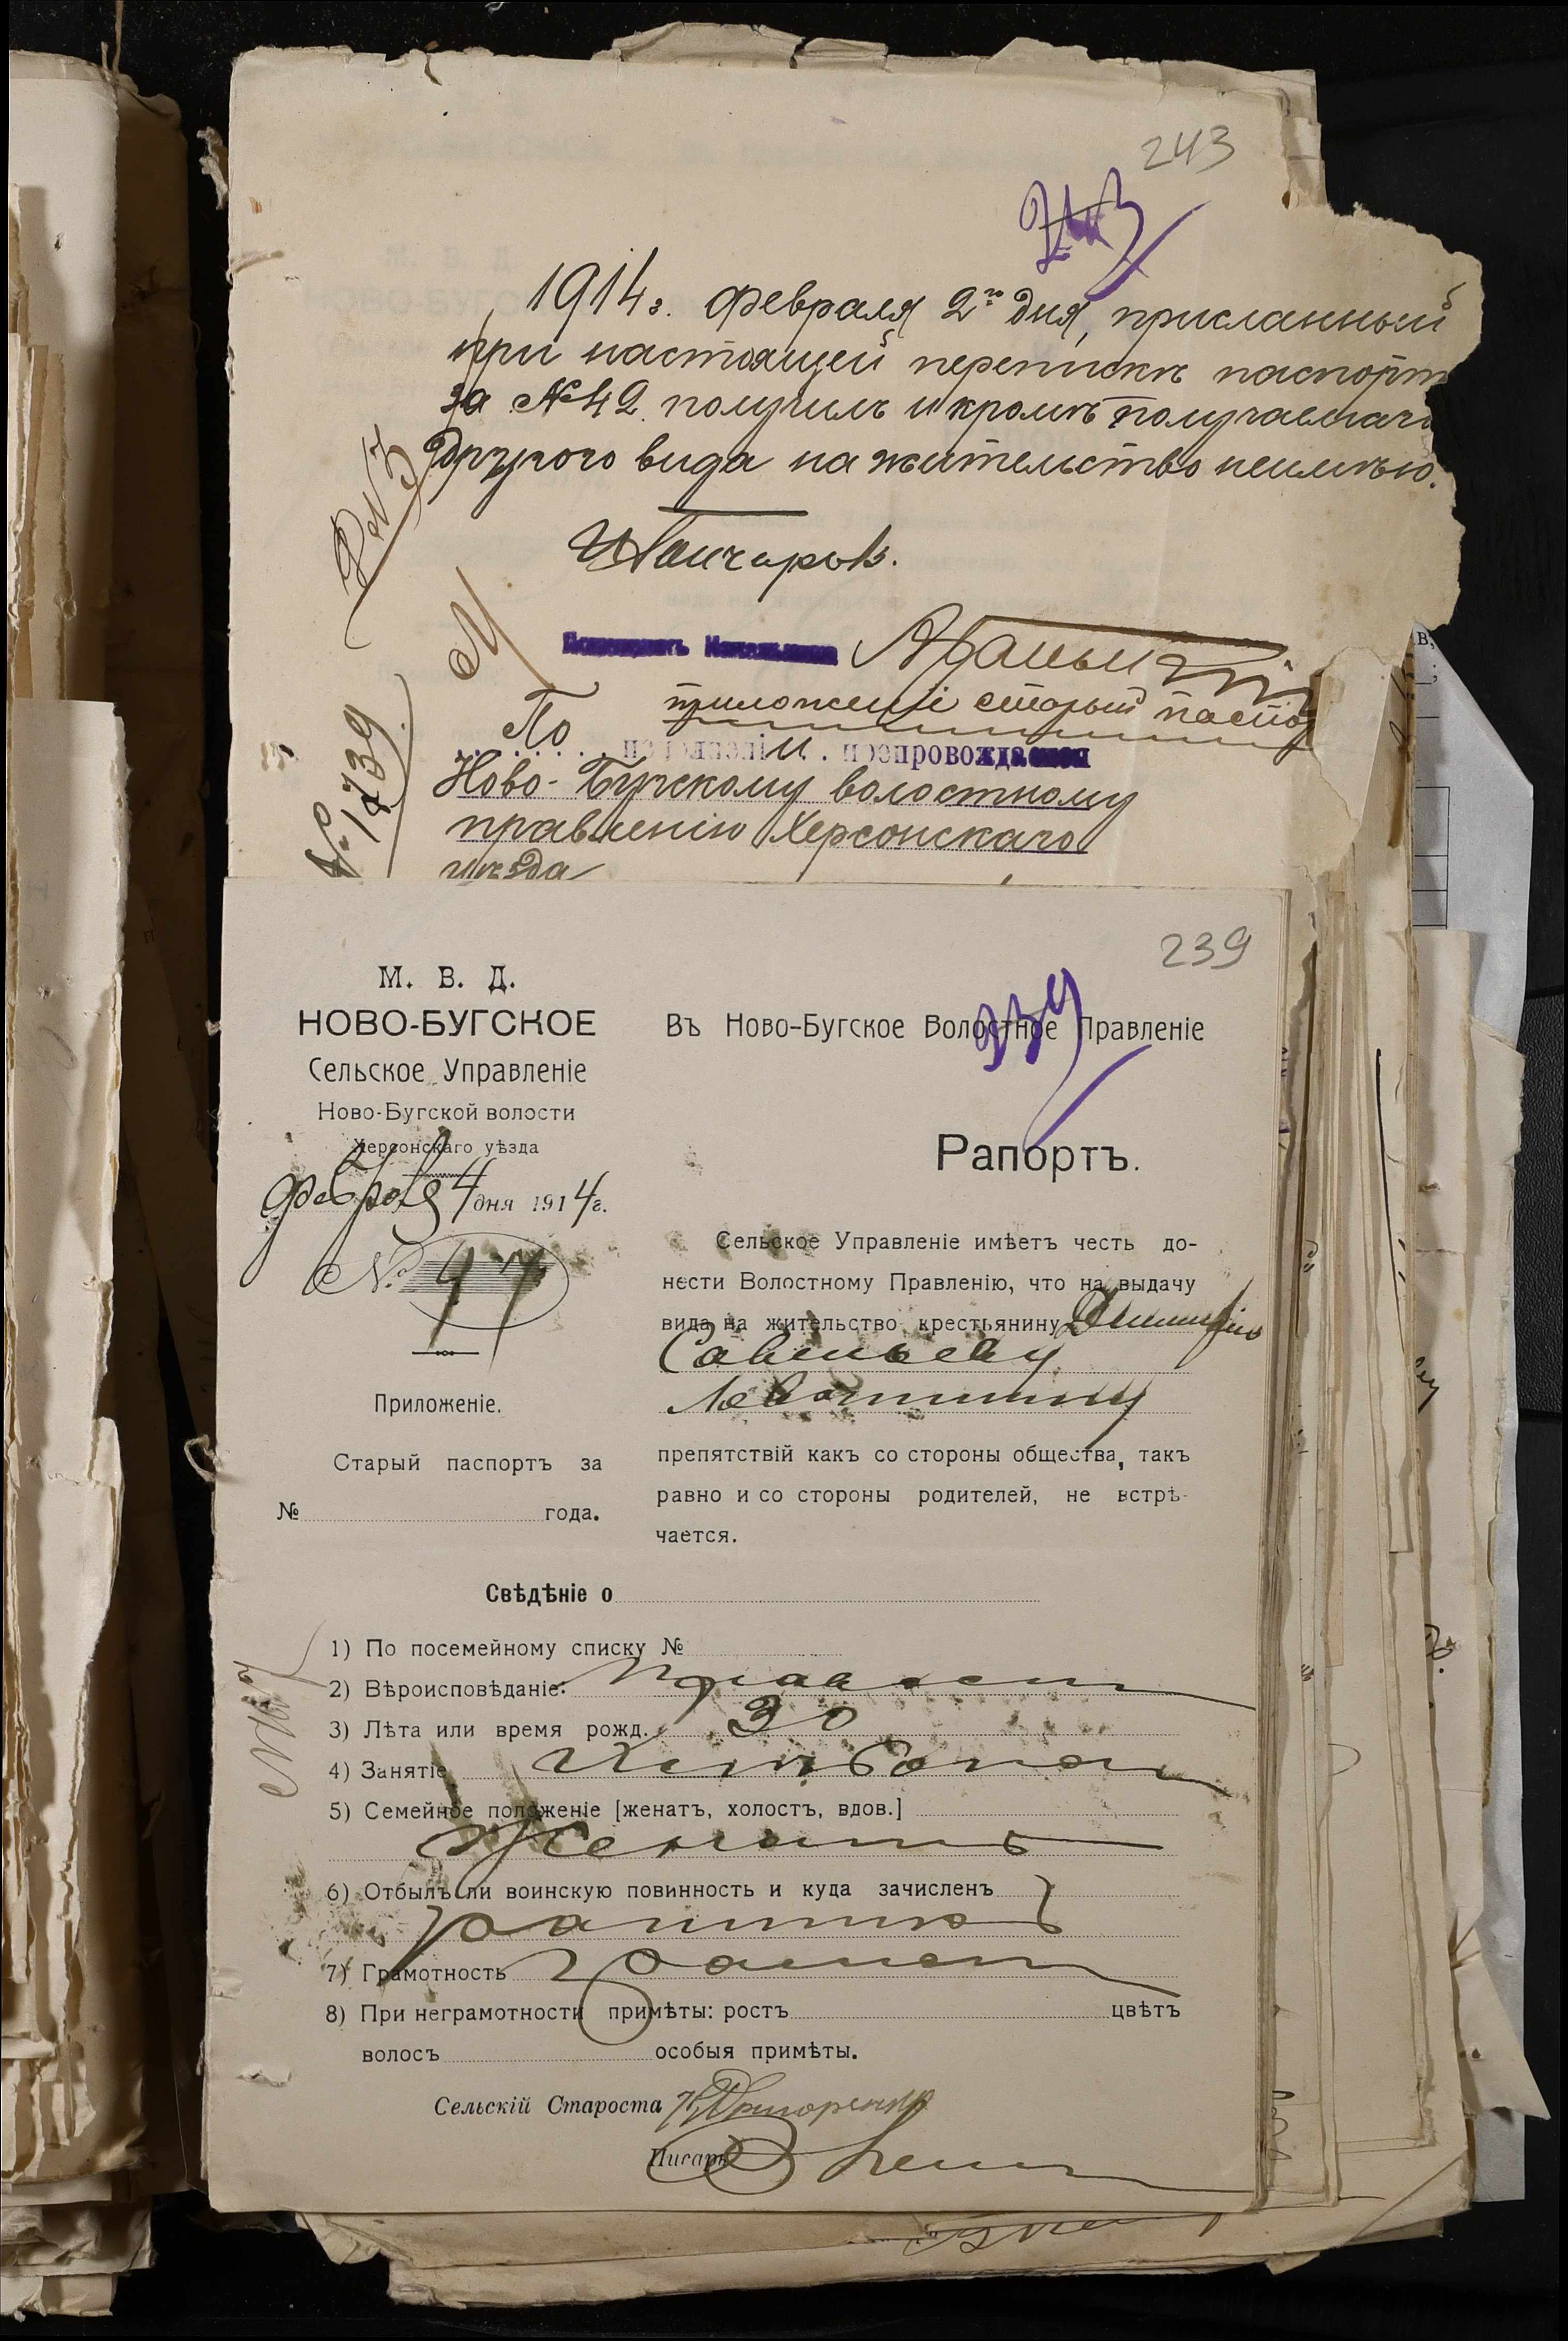 243
243
1914 г. февраля 2го дня, присланный
при настоящей перепискѣ паспорт
за № 42 получилъ и кромѣ получаемаго
другого вида на жительство неимѣю.
приложеніе старый паспор
По . препровожда
Ново-Бугскому волостному
правленію Херсонскаго
уѣзда
№ 1739
239
239
М. В. Д.
НОВО-БУГСКОЕ
Сельское Управленіе
Ново-Бугской волости
Херсонскаго уѣзда
феврал 4 дня 1914 г.
№
Приложеніе.
Старый паспортъ за
№ года.
Въ Ново-Бугское Волостное Правленіе
Рапортъ.
Сельское Управленіе имѣетъ честь до-
нести Волостному Правленію, что на выдачу
вида на жительство крестьянину Дмитрію
Савельеву
препятствій какъ со стороны общества, такъ
равно и со стороны родителей, не встрѣ-
чается.
Свѣдѣніе о
1) По посемейному списку №
2) Вѣроисповѣданіе: правосл
3) Лѣта или время рожд. 30
4) Занятіе хлѣбопаш
5) Семейное положеніе [женатъ, холостъ, вдов.]
Женатъ
6) Отбылъ ли воинскую повинность и куда зачисленъ
ратникъ
7) Грамотность грамот
8) При неграмотности примѣты: ростъ цвѣтъ
волосъ особыя примѣты.
Сельскій Староста
Писарь